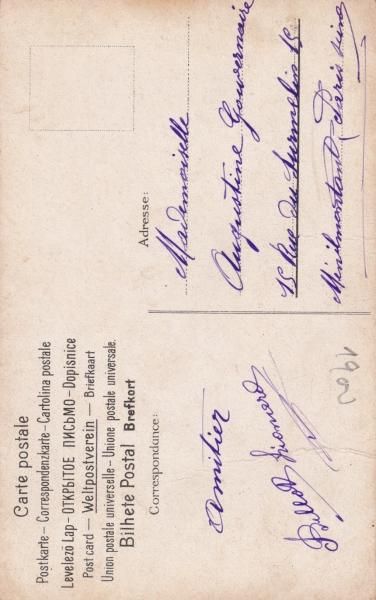 Carte postale
Postkarte – Correspondenzkarte – Cartolina postale
Levelező Lap – ОТКРЫТОЕ ПИСЬМО – Dopisnice
Post card — Weltpostverein — Briefkaart
Union postale universelle – Unione postale universale.
Bilhete Postal Brefkort
Correspondance:
amitier
Adresse:
Mademoiselle
Augustine Gouvernaire
15 Rue du Surmelin 15
Minilmontant Paris
190